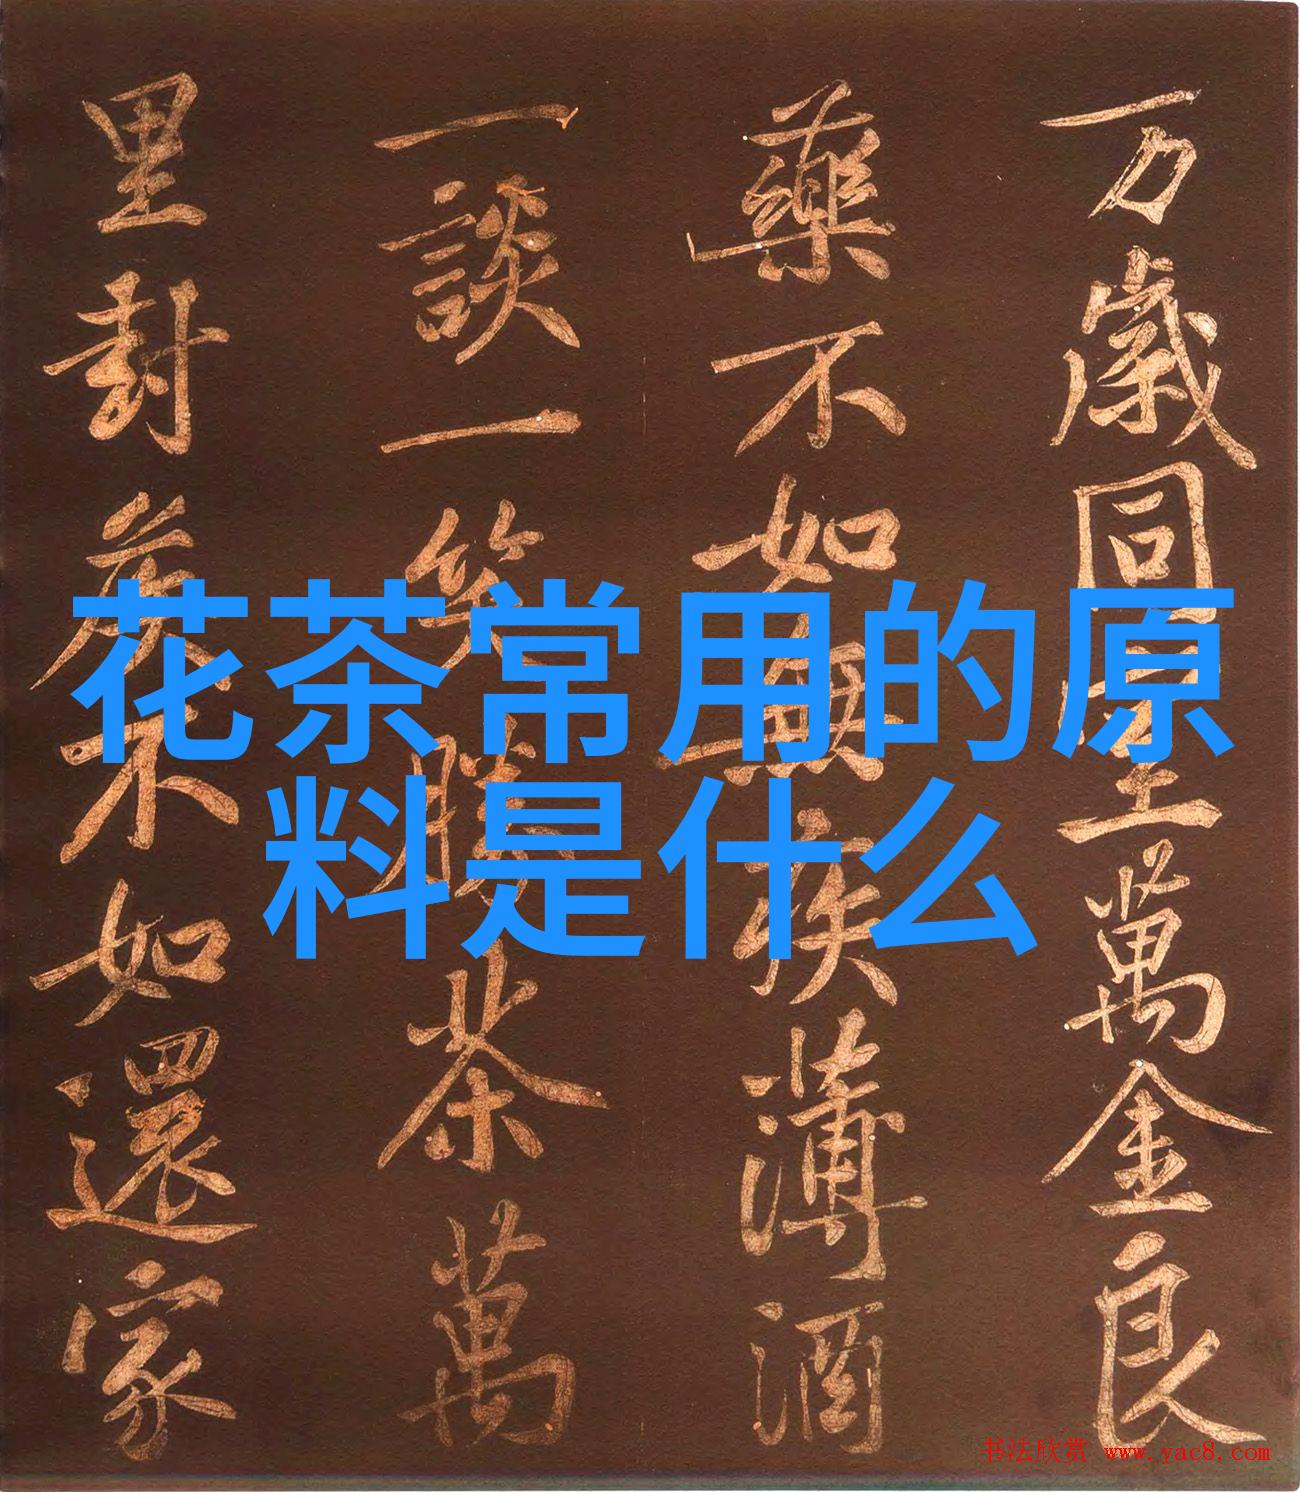 花茶常用的原
料是什么
万歲同室萬金良
藥不如無疾薄酒
一談一笑勝茶萬
里封侯不如還家
书法欣赏 www.yac8.com